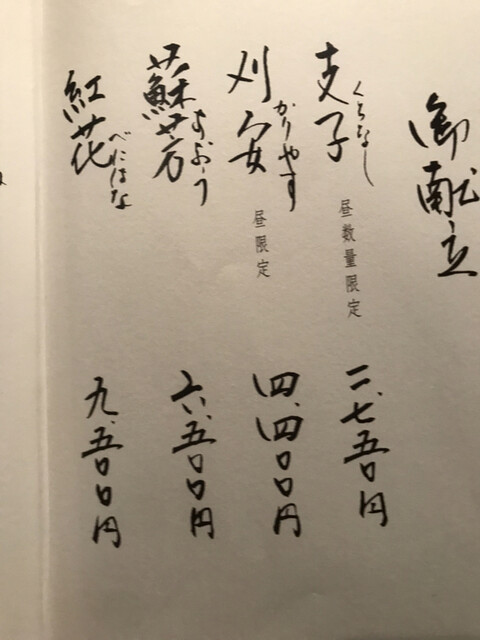 御献立
支子
くちなし
昼数量限定
二、七五〇円
刈安
かりやす
昼限定
四、四〇〇円
蘇芳
すおう
六、五〇〇円
紅花
べにはな
九、五〇〇円